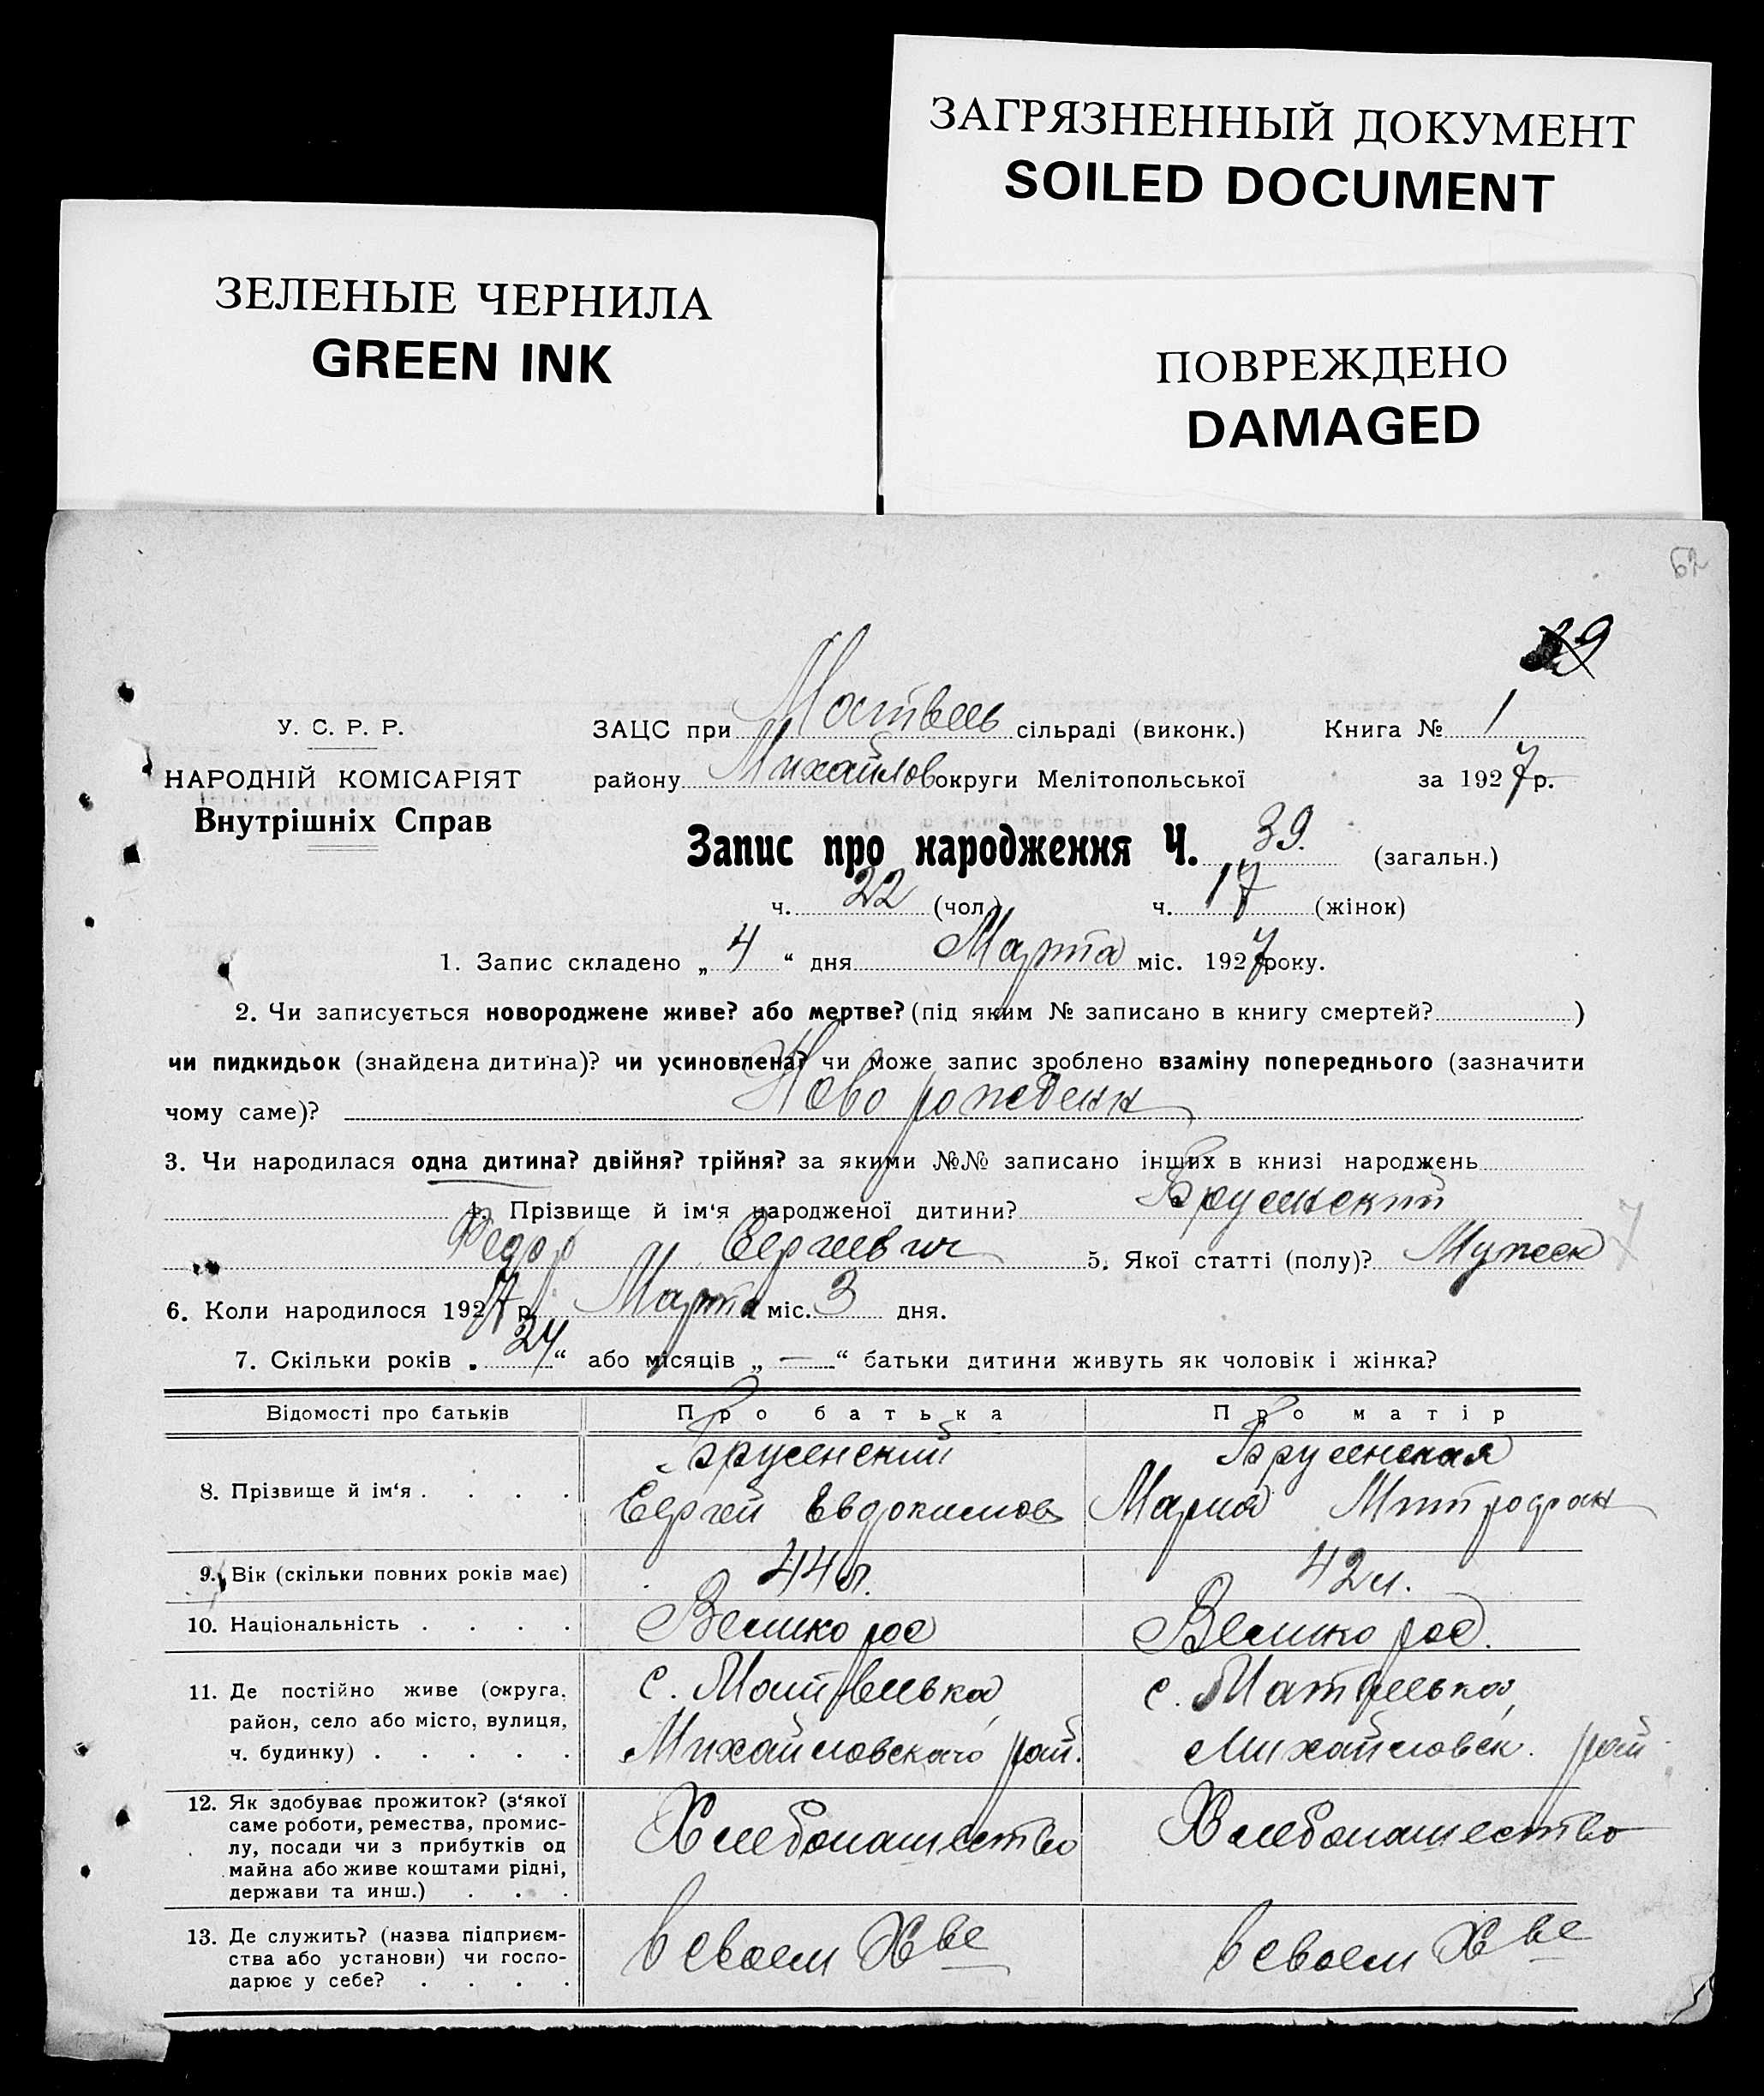 ЗАГРЯЗНЕННЫЙ ДОКУМЕНТ
SOILED DOCUMENT
ЗЕЛЕНЫЕ ЧЕРНИЛА
GREEN INK
ПОВРЕЖДЕНО
DAMAGED
62
39
У. С. Р. Р.
НАРОДНІЙ КОМІСАРІЯТ
Внутрішніх Справ
ЗАЦС при Матвеев сільраді (виконк.) Книга № 1
району Михайлов округи Мелітопольської за 1927 р.
Запис про народження Ч. 39. (загальн.)
ч. 22 (чол.) ч. 17 (жінок)
1. Запис складено „ 4 “ дня Марта міс. 1927 року.
2. Чи записується новороджене живе? або мертве? (під яким № записано в книгу смертей? )
чи пидкидьок (знайдена дитина)? чи усиновлена? чи може запис зроблено взаміну попереднього (зазначити
чому саме)? Ново рожденн
3. Чи народилася одна дитина? двійня? трійня? за якими №№ записано інших в книзі народжень
4. Прізвище й ім‘я народженої дитини? Брусенский
Федор Сергиевич 5. Якої статті (полу)? Мужеск 7
6. Коли народилося 1927 р. Марта міс. 3 дня.
7. Скільки років „ 24 “ або місяців „ — “ батьки дитини живуть як чоловік і жінка?
Відомості про батьків Про батька Про матір
8. Прізвище й ім‘я . . . . Брусенский Брусенская
Сергей Евдокимов Мария Митрофан
9. Вік (скільки повних років має) 44 л. 42 л.
10. Національність . . . . Великорос Великорос.
11. Де постійно живе (округа, с. Матвеевка с. Матвеевка
район, село або місто, вулиця,
ч. будинку) . . . . . Михайловскаго рай. Михайловск. рай
12. Як здобуває прожиток? (з‘якої
саме роботи, ремества, промис-
лу, посади чи з прибутків од Хлебопашество Хлебопашество
майна або живе коштами рідні,
держави та инш.) . . .
13. Де служить? (назва підприєм-
ства або установи) чи госпо- в своем Хве в своем Хве
дарює у себе? . . . .